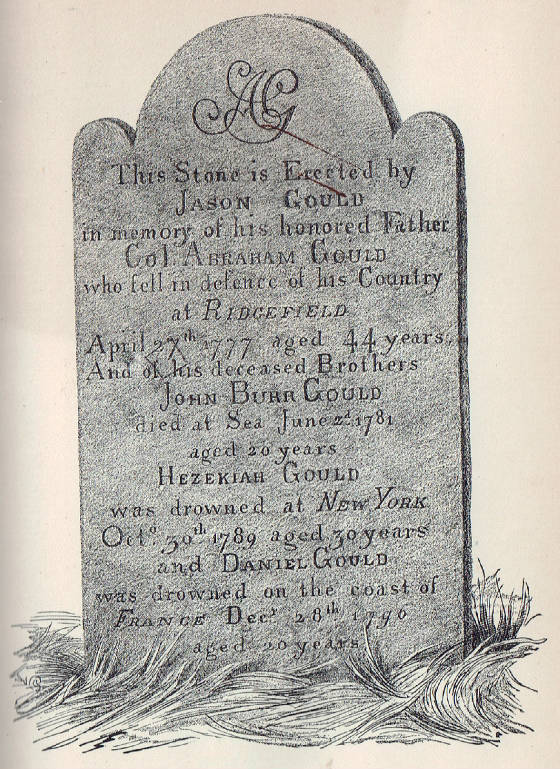 AG
This Stone is Erected by
JASON GOULD
in memory of his honored Father
Col ABRAHAM GOULD
who fell in defence of his Country
at RIDGEFIELD
April 27th 1777 aged 44 years,
And of his deceased Brothers
JOHN BURR GOULD
died at Sea June 2d 1781
aged 20 years
HEZEKIAH GOULD
was drowned at NEW YORK
Octo 30th 1789 aged 30 years
and DANIEL GOULD
was drowned on the coast of
FRANCE Decr 28th 1796
aged 20 years